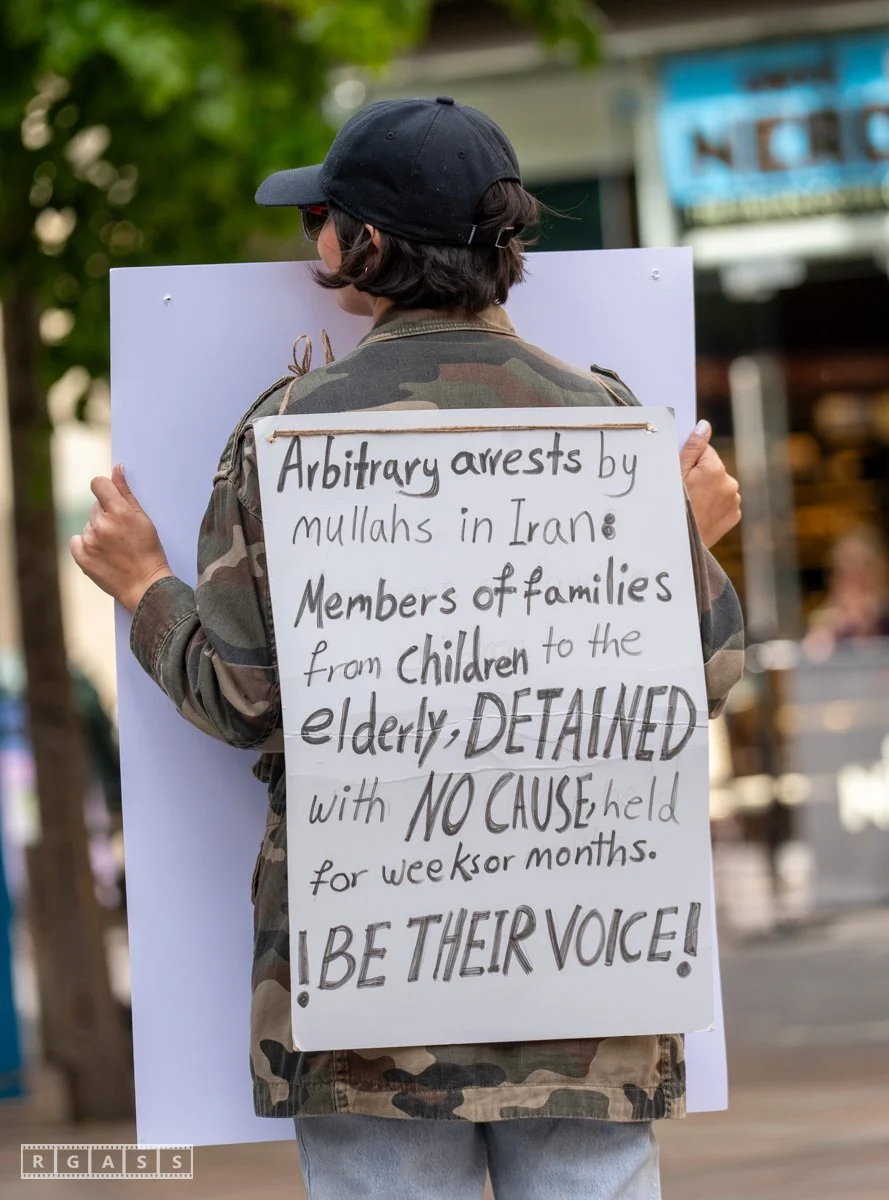 Arbitrary arrests by
mullahs in Iran:
Members of families
from children to the
elderly, DETAINED
with NO CAUSE, held
for weeksor months.
!BE THEIR VOICE!
RGASS